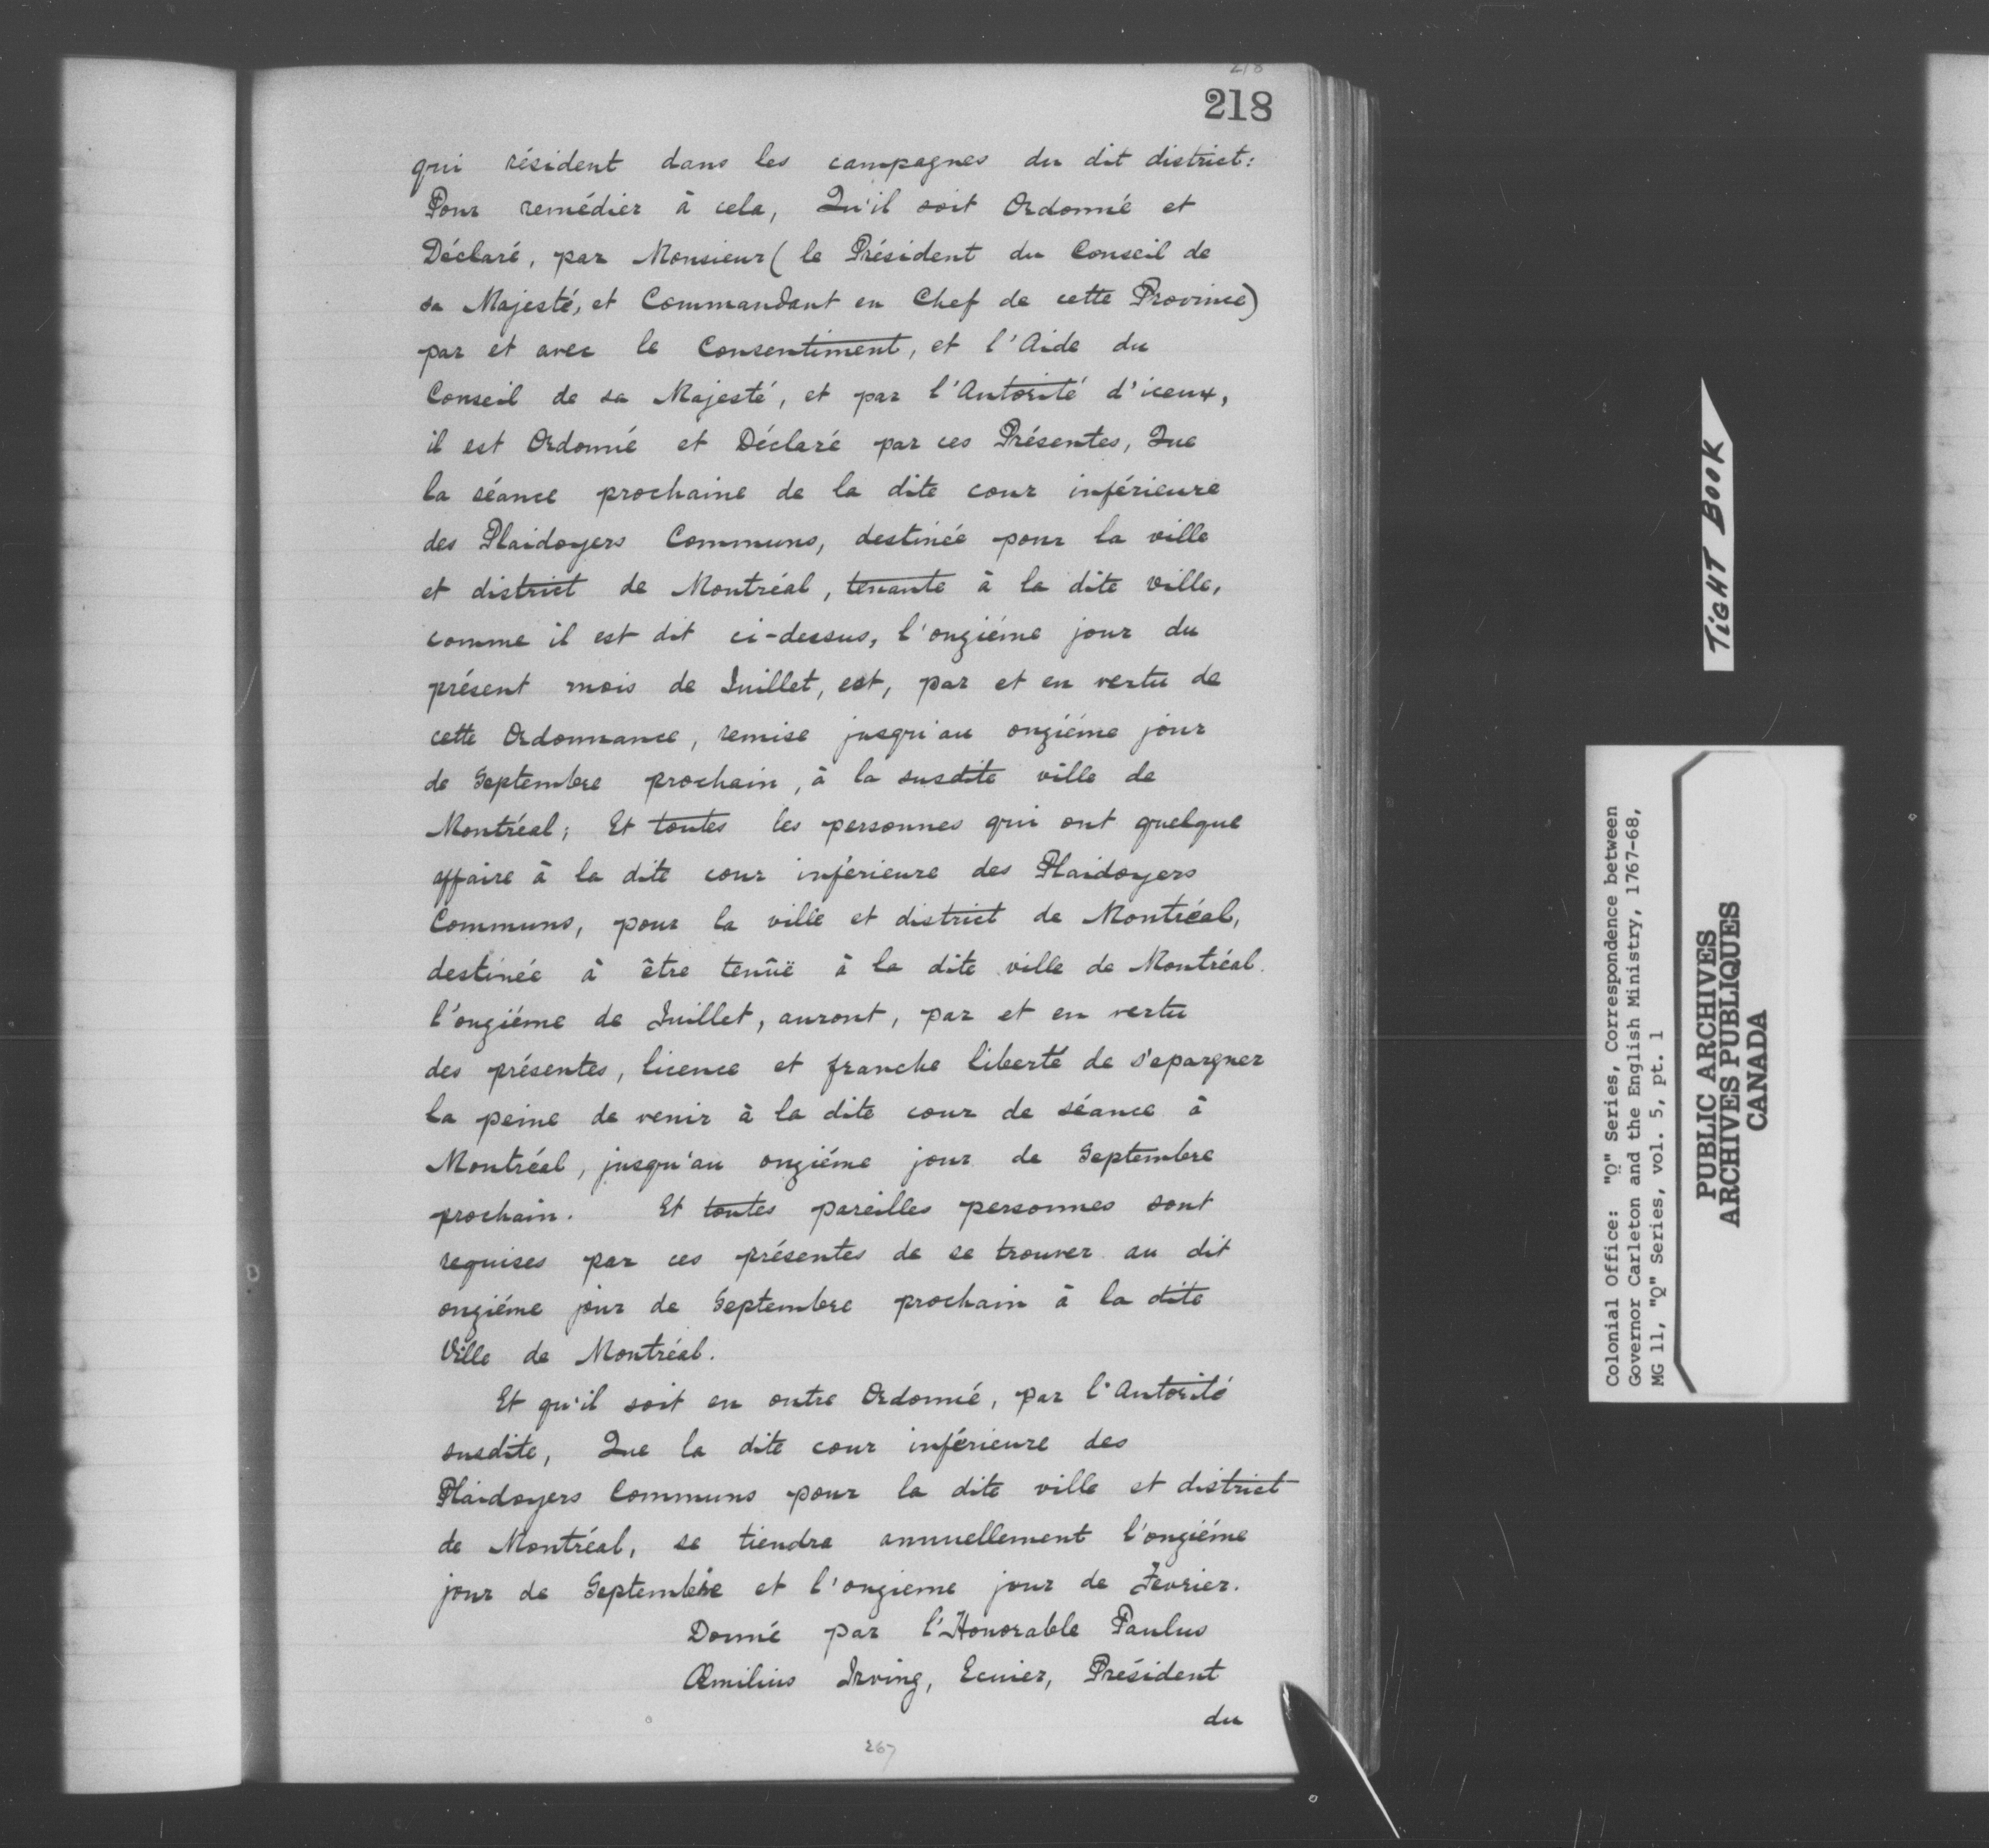 218
218
qui résident dans les campagnes du dit district:
Pour remédier à cela, Qu'il soit Ordonné et
Déclaré, par Monsieur (le Président du Conseil de
sa Majesté, et Commandant en Chef de cette Province)
par et avec le Consentiment, et l'Aide du
Conseil de sa Majesté, et par l'Autorité d'iceux,
il est Ordonné et Déclaré par ces Présentes, Que
la séance prochaine de la dite cour inférieure
des Plaidoyers Communs, destinée pour la ville
et district de Montréal, tenante à la dite ville,
comme il est dit ci-dessus, l'onziéme jour du
présent mois de Juillet, est, par et en vertu de
cette Ordonnance, remise jusqu'au onziéme jour
de Septembre prochain, à la susdite ville de
Montréal; Et toutes les personnes qui ont quelque
affaire à la dite cour inférieure des Plaidoyers
Communs, pour la ville et district de Montréal,
destinée à être tenüe à la dite ville de Montréal.
l'onziéme de Juillet, auront, par et en vertu
des présentes, licence et franche liberté de s'epargner
la peine de venir à la dite cour de séance à
Montréal, jusqu'au onziéme jour de Septembre
prochain. Et toutes pareilles personnes sont
requises par ces présentes de se trouver au dit
onziéme jour de Septembre prochain à la dite
Ville de Montréal.
Et qu'il soit en outre Ordonné, par l'Autorité
susdite, Que la dite cour inférieure des
Plaidoyers Communs pour la dite ville et district
de Montréal, se tiendra annuellement l'onziéme
jour de Septembre et l'onzieme jour de Fevrier.
Donné par l'Honorable Paulus
Œmilius Irving, Ecuier, Président
du
267
TIGHT BOOK
Colonial Office: "Q" Series, Correspondence between
Governor Carleton and the English Ministry, 1767-68,
MG 11, "Q" Series, vol. 5, pt. 1
PUBLIC ARCHIVES
ARCHIVES PUBLIQUES
CANADA